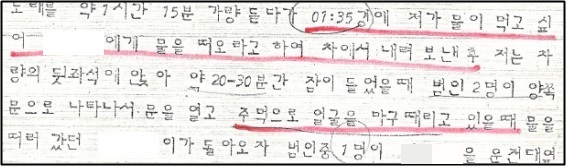 노래를 약1시간 15분 가량 듣다가 01:35경에 저가 물이 먹고 싶
어 에게 물을 떠오라고 하여 차에서 내려 보낸후 저는 차
량의 뒷좌석에 앉아 약 20-30분간 잠이 들었을때 범인 2명이 양쪽
문으로 나타나서 문을 열고 주먹으로 얼굴을 마구 때리고 있을때 물을
떠러 갔던 이가 돌아오자 범인중 1명이 을 운전대옆